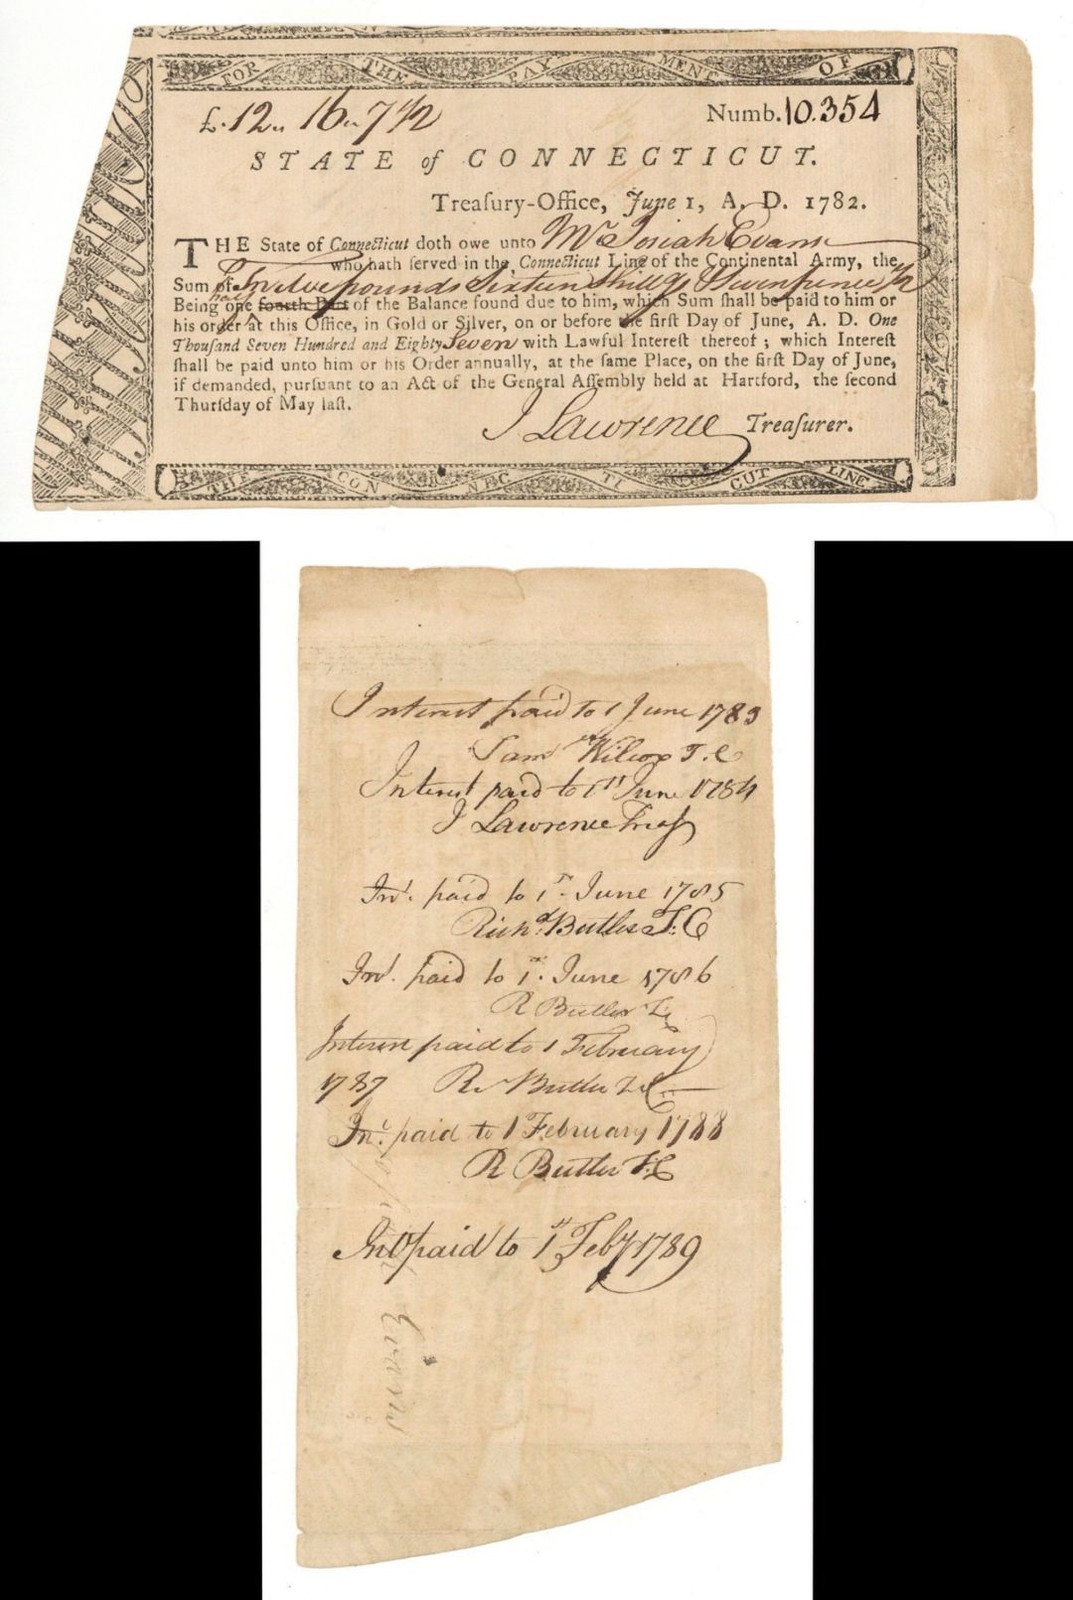 FOR THE PAY MENT OF
£.12.. 16.. 7 1/2
Numb. 10.354
STATE of CONNECTICUT.
Treaſury-Office, June 1, A. D. 1782.
THE State of Connecticut doth owe unto Mr Josiah Evans
who hath ſerved in the Connecticut Line of the Continental Army, the
Sum of Twelve pounds Sixteen Shillgs & Sevenpence 1/2
Being one fourth Part half of the Balance found due to him, which Sum ſhall be paid to him or
his order at this Office, in Gold or Silver, on or before the firſt Day of June, A. D. One
Thouſand Seven Hundred and Eighty Seven with Lawful Intereſt thereof ; which Intereſt
ſhall be paid unto him or his Order annually, at the ſame Place, on the firſt Day of June,
if demanded, purſuant to an Act of the General Aſſembly held at Hartford, the ſecond
Thurſday of May laſt.
J Lawrence Treaſurer.
THE CON NEC TI CUT LINE
Interest paid to 1 June 1783
Sam Wilcox T. C
Interest paid to 1st June 1784
J Lawrence Treasr
Int. paid to 1st. June 1785
Richd. Butler T. C
Int. paid to 1st. June 1786
R Butler T.
Interest paid to 1 February
1787 R. Butler T C
Int. paid to 1 February 1788
R Butler T.C
Int paid to 1st Feby 1789
Josiah Evans